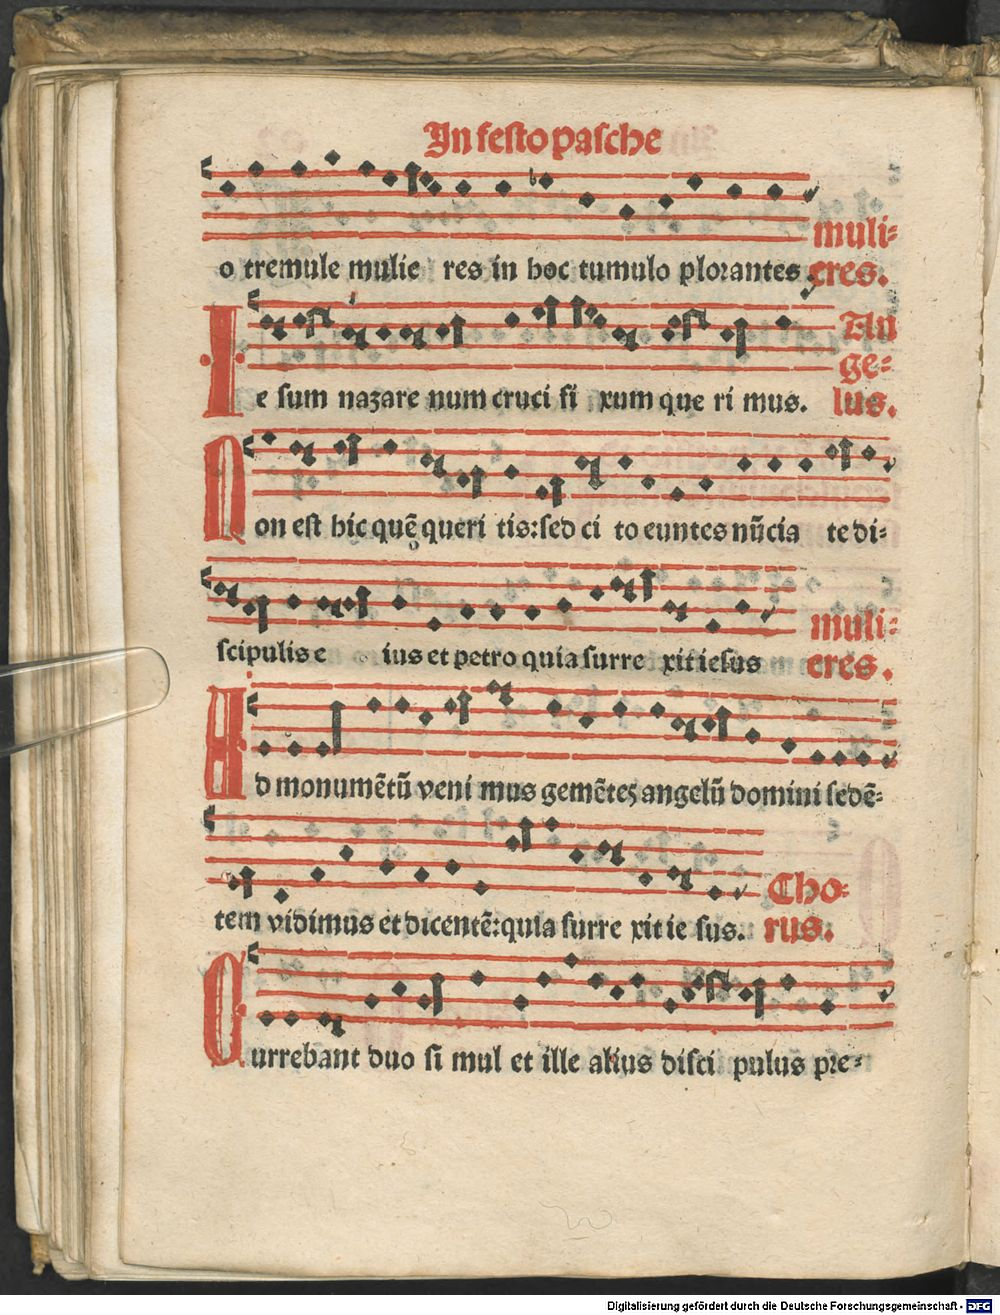 In festo pasche
o tremule mulie res in hoc tumulo plorantes muli-
eres.
I e sum nazare num cruci fi xum que ri mus. An
ge-
lus.
N on est hic quē queri tis: sed ci to euntes nūcia te di-
scipulis e ius et petro quia surre xit iesus muli-
eres.
A d monumētū veni mus gemētes angelū domini sedē-
tem vidimus et dicentē: quia surre xit ie sus. Cho-
rus.
C urrebant duo si mul et ille alius disci pulus pre-
Digitalisierung gefördert durch die Deutsche Forschungsgemeinschaft - DFG